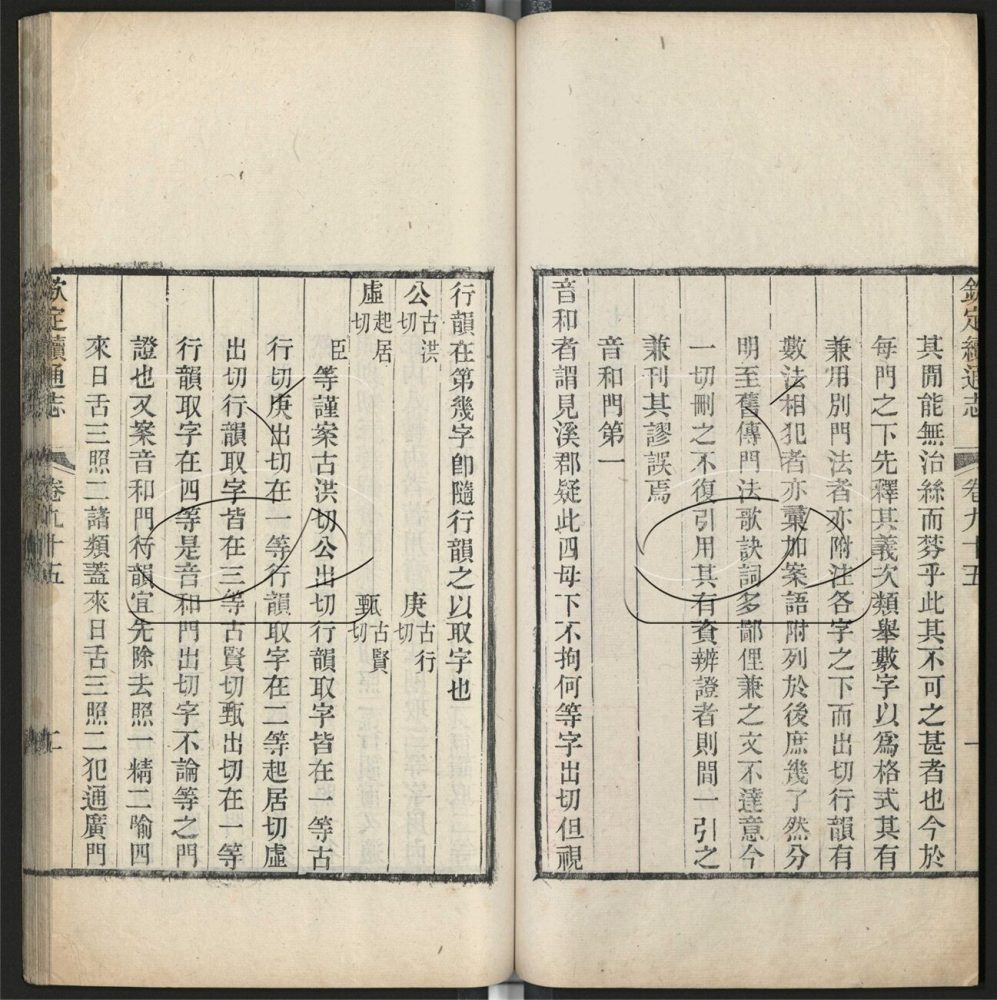 欽定續通志 卷九十五 一
其閒能無治絲而棼乎此其不可之甚者也今於
每門之下先釋其義次類舉數字以爲格式其有
兼用別門法者亦附注各字之下而出切行韻有
數法相犯者亦彚加案語附列於後庶幾了然分
明至舊傳門法歌訣詞多鄙俚兼之文不達意今
一切刪之不復引用其有資辨證者則間一引之
兼刊其謬誤焉
音和門第一
音和者謂見溪郡疑此四母下不拘何等字出切但視
行韻在第幾字卽隨行韻之以取字也
公古洪切 庚古行切
虛起居切 甄古賢切
臣等謹案古洪切公出切行韻取字皆在一等古
行切庚出切在一等行韻取字在二等起居切虛
出切行韻取字皆在三等古賢切甄出切在一等
行韻取字在四等是音和門出切字不論等之門
證也又案音和門行韻宜先除去照一精二喻四
來日舌三照二諸類蓋來日舌三照二犯通廣門
欽定續通志 卷九十五 二